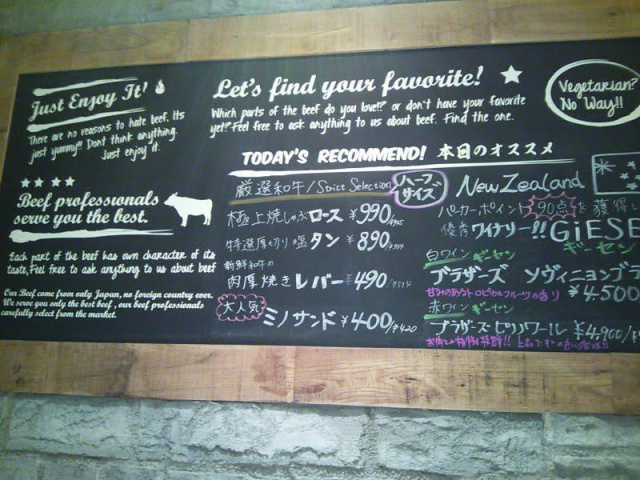 Just Enjoy It!
There are no reasons to hate beef. Its
just yummy!! Dont think anything.
Just enjoy it.
Beef professionals
serve you the best.
Each part of the beef has own character of its
taste, Feel free to ask anything to us about beef
Our Beef come from only Japan, no foreign country ever.
We serve you only the best beef, our beef professionals
carefully select from the market.
Let's find your favorite!
Which parts of the beef do you love!? or don't have your favorite
yet? Feel free to ask anything to us about beef. Find the one.
Vegetarian?
No Way!!
TODAY'S RECOMMEND! 本日のオススメ
厳選和牛/Strict Selection
ハーフ
サイズ
極上焼しゃぶロース ¥990
特選厚切り塩タン ¥890
新鮮和牛の
肉厚焼きレバー ¥490
大人気
ミノサンド ¥400/¥420
New Zealand
パーカーポイント90点を獲得
優秀ワイナリー!! GiESE
ギーセン
白ワイン ギーセン
ブラザーズ ソヴィニョンブラ
¥4500
赤ワイン ギーセン
ブラザーズ ピノノワール ¥4,900